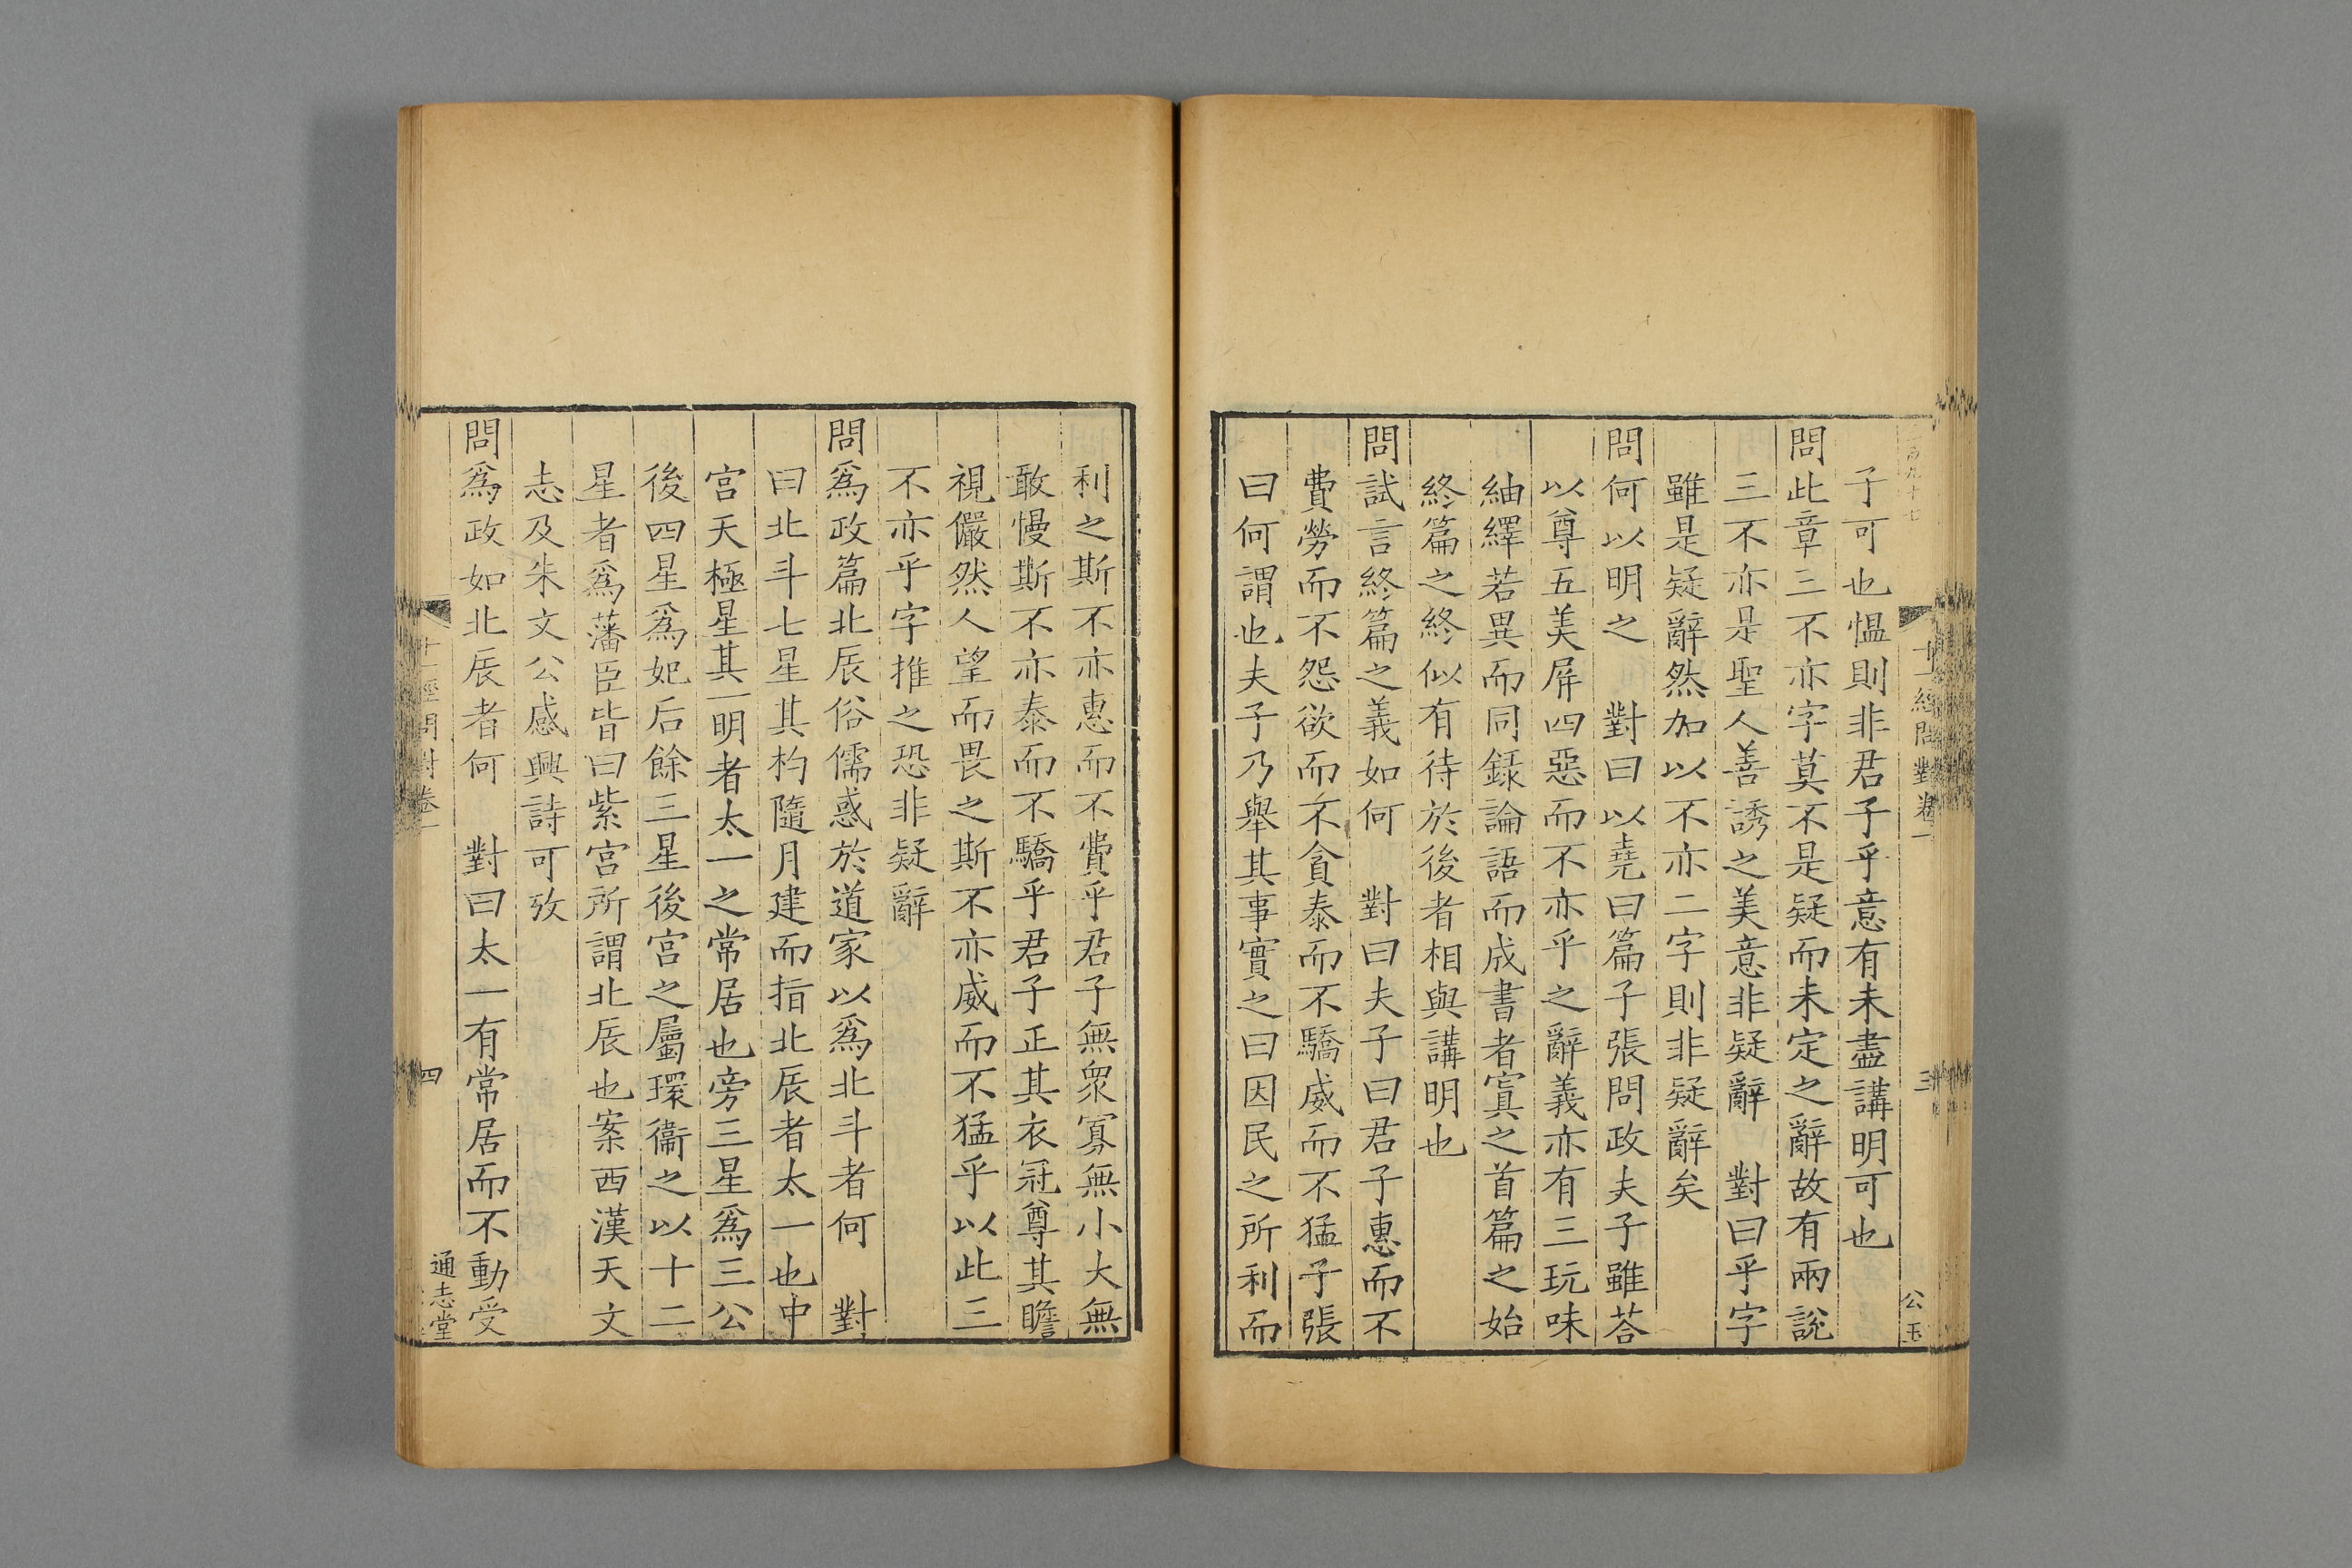 十一經問對卷一
三
公玉
子可也慍則非君子乎意有未盡講明可也
問此章三不亦字莫不是疑而未定之辭故有兩說
三不亦是聖人善誘之美意非疑辭　對曰乎字
雖是疑辭然加以不亦二字則非疑辭矣
問何以明之　對曰以堯曰篇子張問政夫子雖荅
以尊五美屏四惡而不亦乎之辭義亦有三玩味
紬繹若異而同錄論語而成書者寘之首篇之始
終篇之終似有待於後者相與講明也
問試言終篇之義如何　對曰夫子曰君子惠而不
費勞而不怨欲而不貪泰而不驕威而不猛子張
曰何謂也夫子乃舉其事實之曰因民之所利而
利之斯不亦惠而不費乎君子無衆寡無小大無
敢慢斯不亦泰而不驕乎君子正其衣冠尊其瞻
視儼然人望而畏之斯不亦威而不猛乎以此三
不亦乎字推之恐非疑辭
問爲政篇北辰俗儒惑於道家以爲北斗者何　對
曰北斗七星其杓隨月建而指北辰者太一也中
宮天極星其一明者太一之常居也旁三星爲三公
後四星爲妃后餘三星後宮之屬環衞之以十二
星者爲藩臣皆曰紫宮所謂北辰也案西漢天文
志及朱文公感興詩可攷
問爲政如北辰者何　對曰太一有常居而不動受
十一經問對卷一
四
通志堂